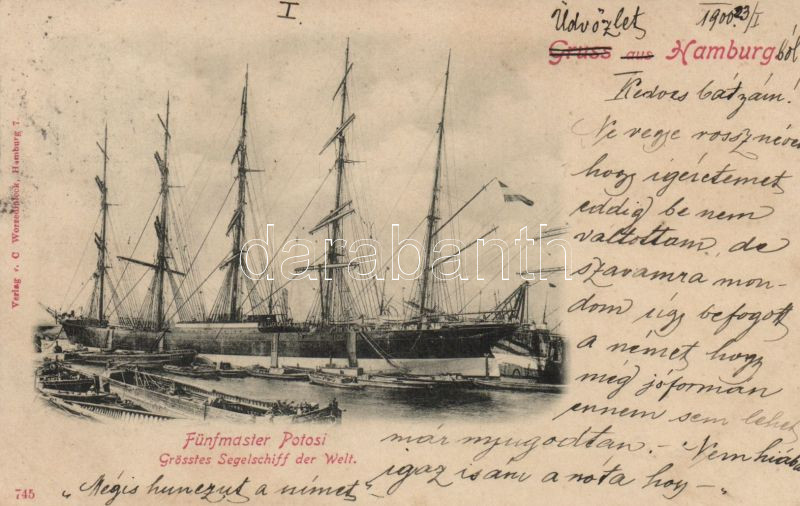 I.
Üdvözlet 1900 23/I
Gruss aus Hamburgból
Kedves bátyám!
Ne vegye rossz néven
hogy igéretemet
eddig be nem
váltottam, de
szavamra mon-
dom úgy befogott
a német hogy
még jóformán
ennem sem lehet
már nyugodtan. - Nem hiába
igaz is ám a nóta hogy -
"Mégis hunczut a német"
Fünfmaster Potosi
Grösstes Segelschiff der Welt.
745
Verlag v. C Worzedialeck, Hamburg 7.
darabanth.com